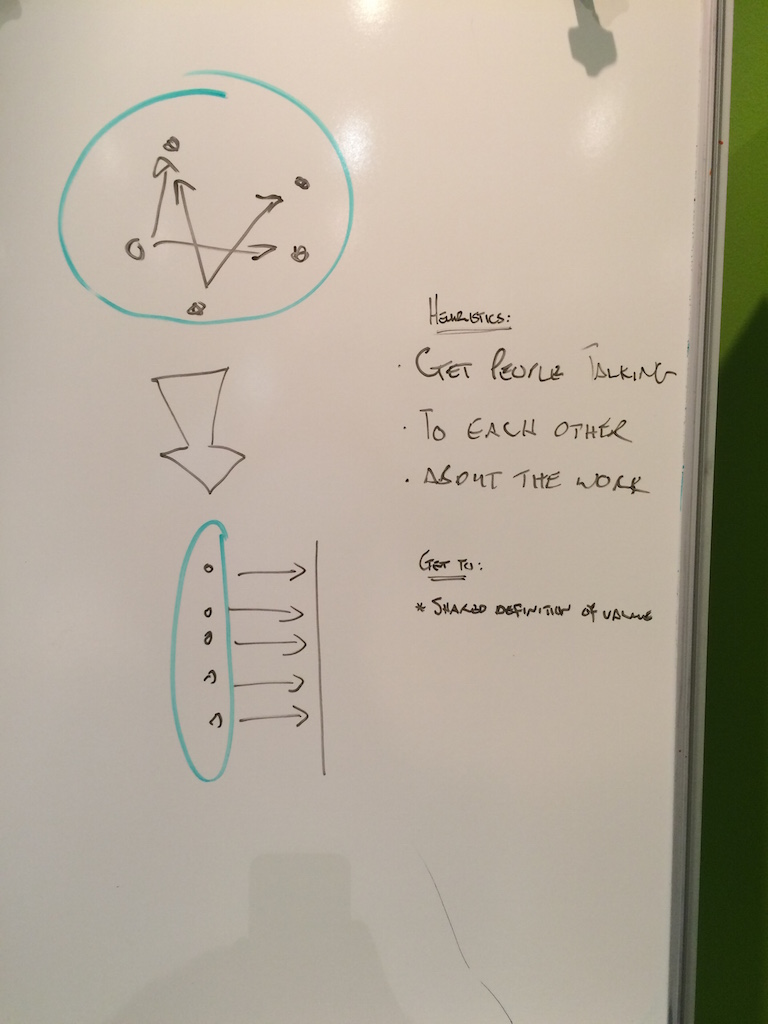 HEURISTICS:
· GET PEOPLE TALKING
· TO EACH OTHER
· ABOUT THE WORK
GET TO:
* SHARED DEFINITION OF VALUE